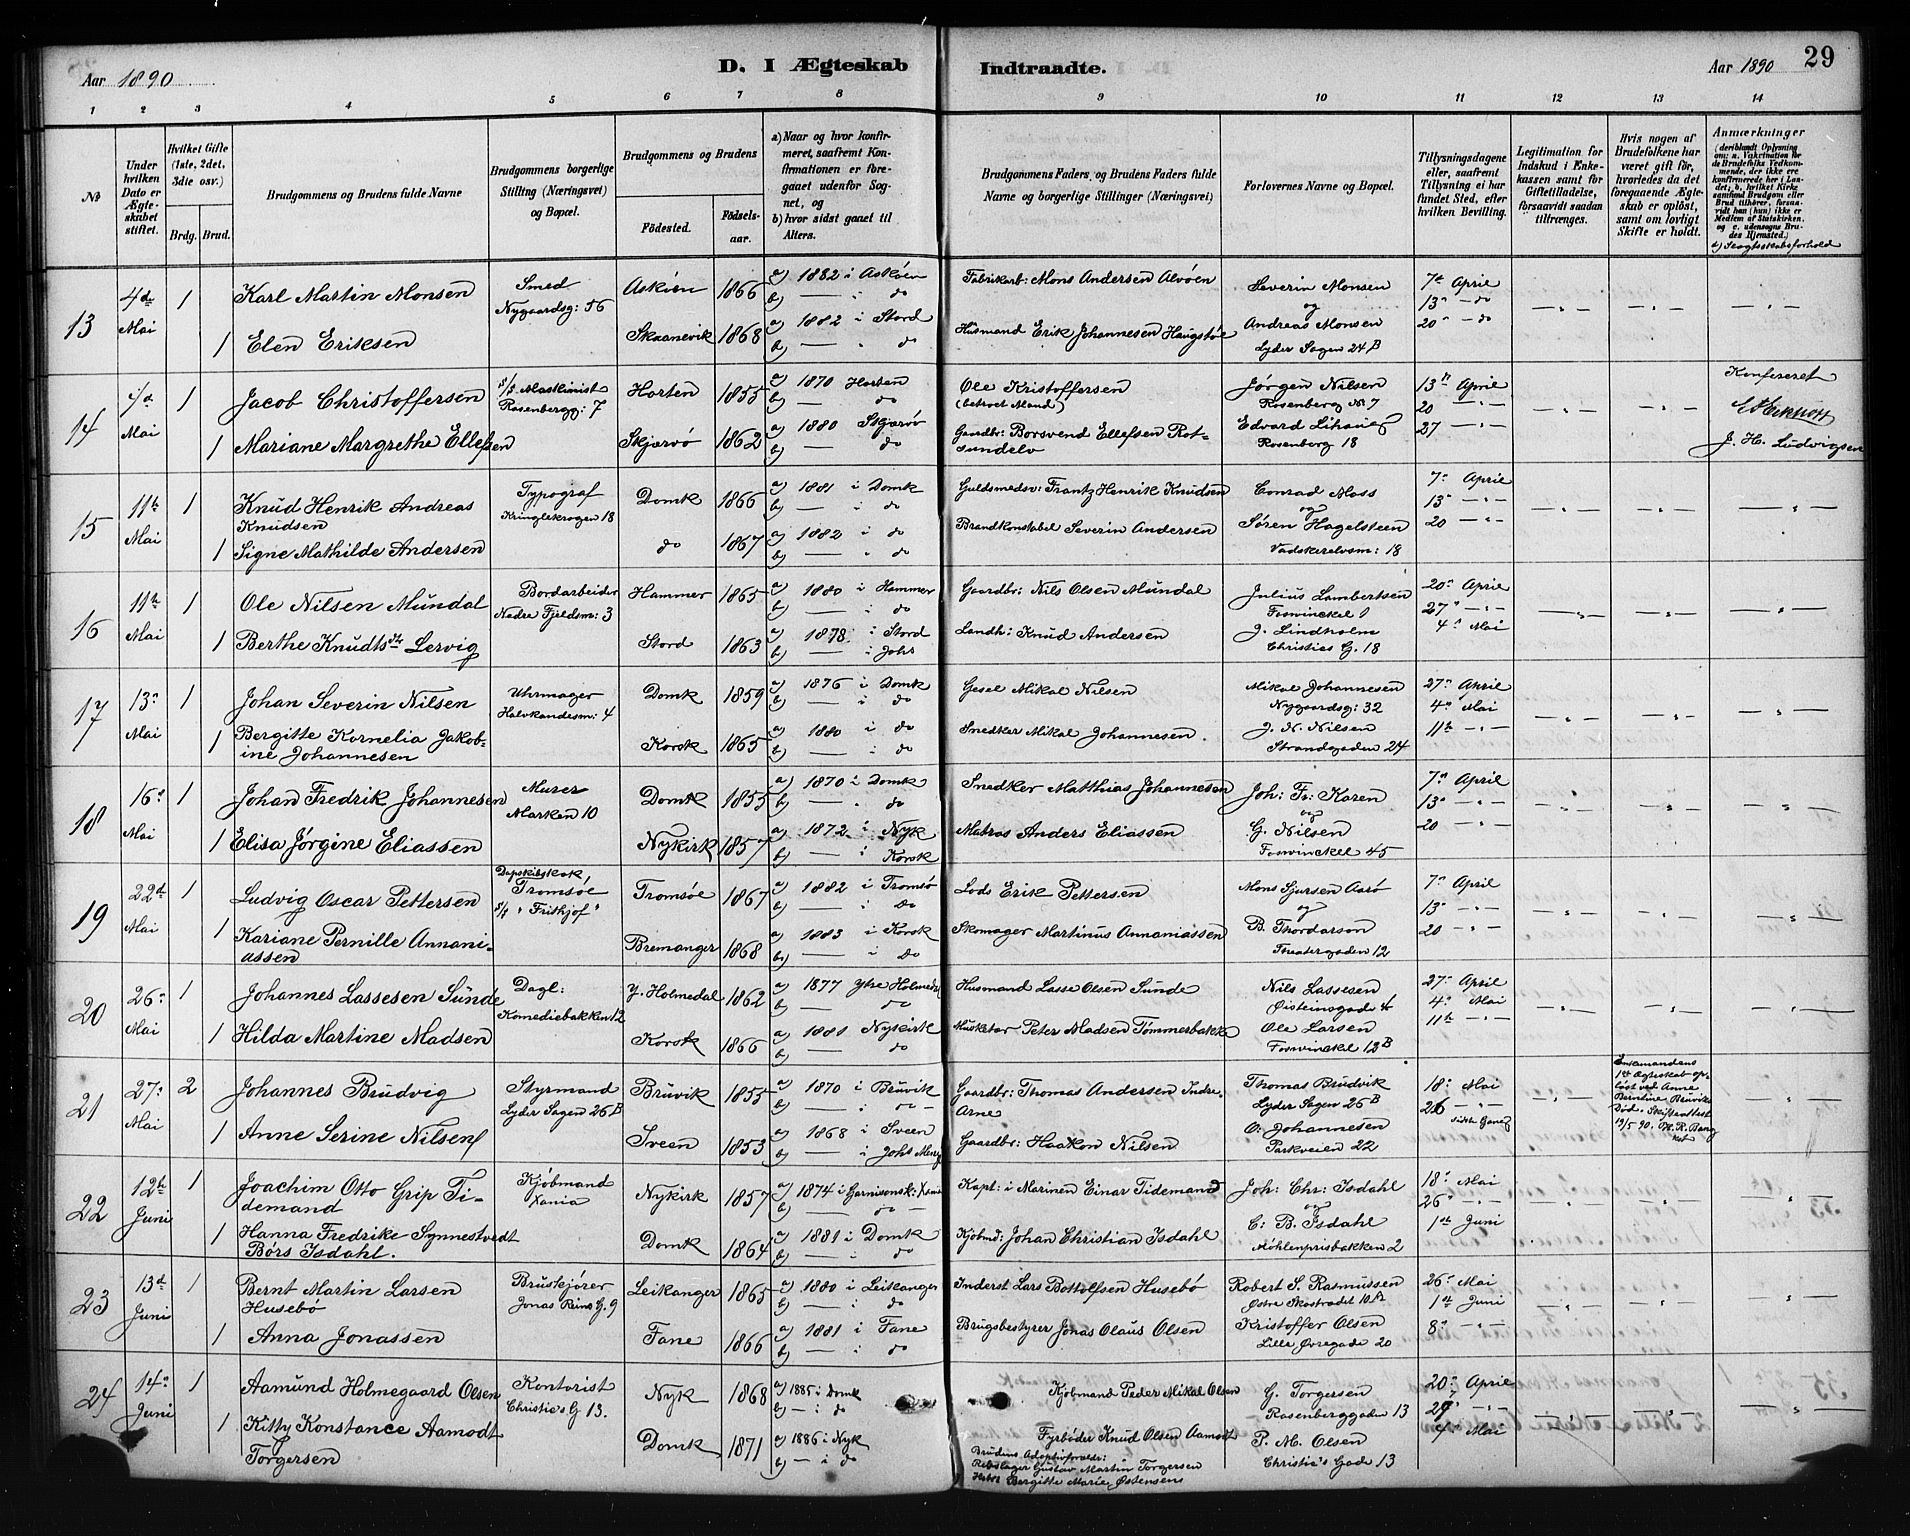 Aar 1890 D. I Ægteskab Indtraadte. Aar 1890 29
1 2 3 4 5 6 7 8 9 10 11 12 13 14
№
Under hvilken Dato er Ægteskabet stiftet.
Hvilket Gifte (1ste, 2det, 3die osv.)
Brdg. Brud.
Brudgommens og Brudens fulde Navne
Brudgommens borgerlige Stilling (Næringsvei) og Bopæl.
Brudgommens og Brudens
Fødested. Fødselsaar.
a) Naar og hvor konfirmeret, saafremt Konfirmationen er foregaaet udenfor Sognet, og
b) hvor sidst gaaet til Alters.
Brudgommens Faders og Brudens Faders fulde Navne og borgerlige Stillinger (Næringsvei)
Forlovernes Navne og Bopæl.
Tillysningsdagene eller, saafremt Tillysning ei har fundet Sted, efter hvilken Bevilling.
Legitimation for Indskud i Enkekassen samt for Giftetilladelse, forsaavidt saadan tiltrænges.
Hvis nogen af Brudefolkene har været gift før, hvorledes da det foregaaende Ægteskab er opløst, samt om lovligt Skifte er holdt.
Anmærkninger (deriblandt Oplysning om: a. Vakcination for de Brudefolks Vedkommende, der ikke ere konfirmerede her i Landet; b. hvilket Kirkesamfund Brudgom eller Brud tilhører, forsaavidt han (hun) ikke er Medlem af Statskirken, og c. udensogns Brudes Hjemsted.)
d) Slægtsskabsforhold
13 4de Mai 1 Karl Martin Monsen Smed Nygaardsg: 56 Askøen 1866 a) 1882 i Askøen b) — i do Fabrikarb: Mons Andersen Alvøen Severin Monsen og 7de April 13" — do
1 Elen Eriksen Skaanevik 1868 a) 1882 i Stord b) — i do Husmand Erik Johannesen Haugstøe Andreas Monsen Lyder Sagen 24 B 20" — do
14 i/d Mai 1 Jacob Christoffersen S/S Maskinist Rosenbergg: 7 Horten 1855 a) 1870 Horten b) — do Ole Kristoffersen (betroet Mand) Jørgen Nilsen Rosenberg № 7 13" April 20 — " — Konfereret
1 Mariane Margrethe Ellefsen Skjærvø 1862 a) 1880 Skjærvø b) — do Gaardbr: Borsvend Ellefsen Rotsundelv Edvard Rosenberg 18 27 — " — J. H. Ludvigsen
15 11te Mai 1 Knud Henrik Andreas Knudsen Typograf Kringlekrogen 18 Domk 1866 a) 1881 i Domk b) — i do Guldsmedsv: Frantz Henrik Knudsen Conrad Moss og 7" April 13" — " —
1 Signe Mathilde Andersen do 1867 a) 1882 i do b) — " do Brandkonstabel Severin Andersen Søren Hagelsteen Vadskerelvsm: 18 20 — " —
16 11te Mai 1 Ole Nilsen Mundal Bordarbeider Nedre Fjeldsm: 3 Hammer 1865 a) 1880 i Hammer b) — " do Gaardbr: Nils Olsen Mundal Julius Lambertsen Fosvinckel 1 20" April 27" — " —
1 Berthe Knudtsdtr Lervig Stord 1863 a) 1878 i Stord b) — i Johs Landh: Knud Andersen J. Lindholm Christies G. 18 4" Mai
17 13" Mai 1 Johan Severin Nilsen Uhrmager Halvkandesm: 4 Domk 1859 a) 1876 i Domk b) — " do Gesel Mikal Nilsen Mikal Johannesen Nygaardsg: 32 27" April 4" Mai
1 Bergitte Kornelia Jakobine Johannesen Korsk 1865 a) 1880 i do b) — " do Snedker Mikal Johannesen. J. N. Nilsen Strandgaden 24 11te — " —
18 16" Mai 1 Johan Fredrik Johannesen Murer Marken 10 Domk 1855 a) 1870 i Domk b) — " do Snedker Matthias Johannesen Joh: Fr: Karen og 7" April 13" — " —
1 Elisa Jørgine Eliassen Nykirk 1857 a) 1872 i Nyk b) — i Korsk Matros Anders Eliassen G. Nilsen Fosvinckel 45 20 — " —
19 22d Mai 1 Ludvig Oscar Pettersen Dapskibskok Tromsøe S/S "Frithjof" Tromsøe 1867 a) 1882 i Tromsø b) — " Do Lods Erik Pettersen Mons Sjursen Aarø og 7" April 13" — " —
1 Kariane Pernille Annaniassen Bremanger 1868 a) 1883 i Korsk b) — i Do Skomager Martinus Annaniassen B. Thordarson Theatergaden 12 20 — " —
20 26" Mai 1 Johannes Lassesen Sunde Dagl: Komediebakken 12 Y. Holmedal 1862 a) 1877 Ytre Holmedal b) — do Husmand Lasse Olsen Sunde Nils Lassesen Øisteinsgade 4 27" April 4" Mai
1 Hilda Martine Madsen Korsk 1866 a) 1881 Nykirk b) — do Musketør Peter Madsen Tømmerbakke Ole Larsen Fosvinckel 12 B 11te — " —
21 27" Mai 2 Johannes Brudvig Styrmand Lyder Sagen 26 B Bruvik 1855 a) 1870 i Bruvik b) — " do — Gaardbr: Thomas Andersen Indre-Arne Thomas Brudvik Lyder Sagen 26 B 18" Mai 26 — " — Enkemandens 1ste Ægteskab opløst ved Anne Berntine Bruviks Død. Skifteattest 19/5 90.
1 Anne Serine Nilsen Sveen 1853 a) 1868 i Sveen b) — i Johs Gaardbr: Haakon Nilsen O. Johannesen Parkveien 22 sidste Gang
22 12te Juni 1 Joachim Otto Grip Tidemand Kjøbmand Xania Nykirk 1857 a) 1874 i Garnisonsk: Xania b) — " do — Kapt: i Marinen Einar Tidemand Joh: Chr: Isdahl og 18" Mai 26" — " —
1 Hanna Fredrike Synnestvedt Børs Isdahl. Domk 1864 a) 1881 i Domk b) — " do Kjøbmd: Johan Christian Isdahl C: B. Isdahl Møhlenprisbakken 2 1ste Juni
23 13d Juni 1 Bernt Martin Larsen Husebø Bruskjører Jonas Reins G. 9 Leikanger 1865 a) 1880 i Leikanger b) — i do Inderst Lars Bottolfsen Husebø Robert S. Rasmussen Østre Skostrædet 10 A 26" Mai 1ste Juni
1 Anna Jonassen Fane 1866 a) 1881 i Fane b) — i do Brugsbestyrer Jonas Olaus Olsen Kristoffer Olsen Lille Øvregade 20 8" — " —
24 14" Juni 1 Aamund Holmegaard Olsen Kontorist Christie's G 13. Nyk 1868 a) 1885 i Domk b) — i do Kjøbmand Peder Mikal Olsen G. Torgersen Rosenberggaden 13 20" April 27 — " —
1 Kitty Konstance Aamodt Torgersen Domk 1871 a) 1886 i Nyk b) — i do Fyrbøder Knud Olsen Aamodt P. M. Olsen Christie's Gade 13 4de Mai
Brudens Adoptivforældre:
Rebslager Gustav Martin Torgersen
Bergitte Marie Østensens